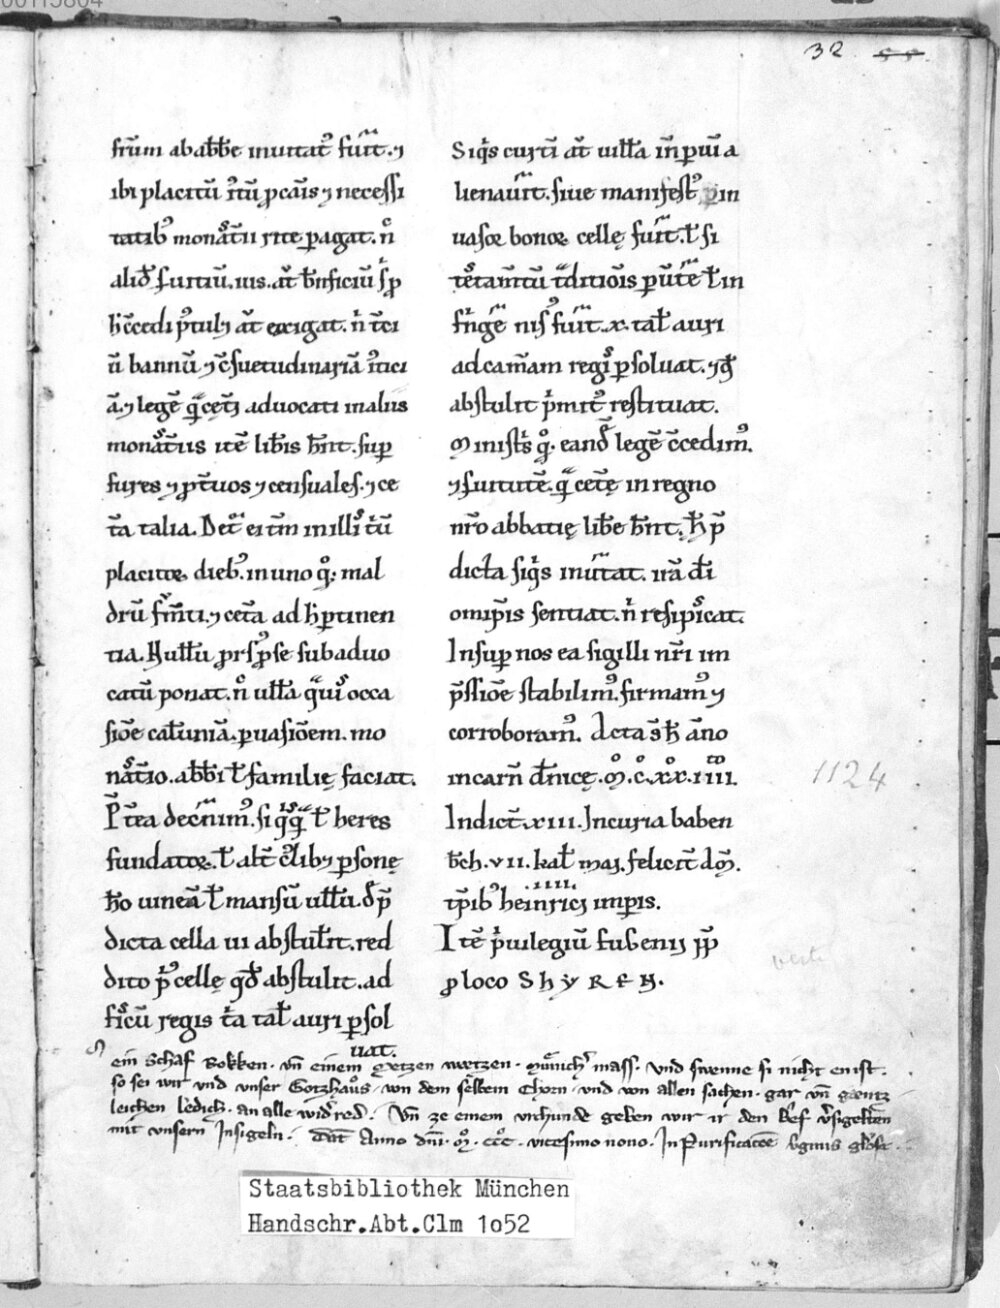 32
fr̄um ab abb̄e inuitat᷒ fu͛it. ⁊
ibi placitū r̄tū p̱cāis ⁊ necessi
tatib᷒ monast̄ii rite p̱agat. n̄
aliđ seruitiū. ius. at̄ b̄nficiū s
h̄ c̄cedi
ū bannū ⁊ c̄suetudinariā
ā. ⁊ legē q̄ cet̄ aduocati in aliis
monast̄iis itē lib̄is h̄nt. sup̱
fures ⁊ p̱t̄uos ⁊ censuales. ⁊ ce
t̄a talia. Det̄ ei tm̄ in illis t̄iū
placitoꝝ dieb᷒. in uno q̊q; mal
drū frm̄ti. ⁊ cet̄a ad h̄ p̱tinen
tia. Nullū p̱r s᷒ p̱ se subaduo
catū ponat. n̄ ull̄a q̄uis occa
siōe cal̄uniā. p̱uasiōem. mo
nast̄io. abb̄i ł familię faciat.
P̄t̄ea dec̄nim᷒. si q̄sq̄ ł heres
fundatoꝝ. ł alt̄ c̄lib᷒ p̱sonę
ħo uineā ł mansū ullū. đ p̄
dicta cella ui abstul̄it. red
dito p᷒ cellę qđ abstulit. ad
fiscū regis t̄a tal̄ auri p̱sol
uat.
Siq̄s curtī at̄ uill̄a in p̱uī a
lienau͛it. siue manifest᷒ p̱in
uasoꝝ bonoꝝ cellę fu͛it. ł si
testam̄tū t̄ditiōis p̱u͛te ł in
fr̄nge͛ nis᷒ fu͛it. x. tal̄ auri
ad cam̄am regis p̱soluat. ⁊ qđ
abstulit p̄mit᷒ restituat.
Minist̄s q̊q; eand̄ legē c̄cedim᷒.
⁊ s̄uitutē. q̄ cet̄ę in regno
nr̄o abbatię lib̄e h̄nt. H̄ p̄
dicta siq̄s inu͛tat. irā dī
omip̄is sentiat. n̄ resipiscat.
Insup̱ nos ea sigilli nr̄i im
p̄ssiōe stabilim᷒. firmam᷒ ⁊
corroboram᷒. Acta s̄ h̄ āno
incarn̄ dn̄icę. M̊. c̊. xx̊. iiii.
Indict̄. xiii. In curia baben
b̄ch. vii. kal̄ maj. felicit̄ dom̄.
tp̄ib᷒ heinrici .iiii. imp̱is.
Itē p̄uilegiū eugenij pp̄
p̱ loco SHYREN.
1124
ein Schaf Rokken. vn̄ einem Metzen weitzen. Mu̇nich᷒ mass. vnd swenne si nicht en ist.
so sei wir vnd vnser Gotzhaus. von dem selbem Chorn. vnd von allen sachen. gar vn̄ gentz
leichen ledich. an alle wid᷒red. Vn̄ ze einem vrchunde geben wir ir den Brief v᷒sigelten
mit vnsern Insigeln. Dat̄ Anno dn̄i. M̊. ccc̊. vicesimo nono. In Purificatōe v͛ginis gl̄ose.
Staatsbibliothek München
Handschr.Abt.Clm 1o52